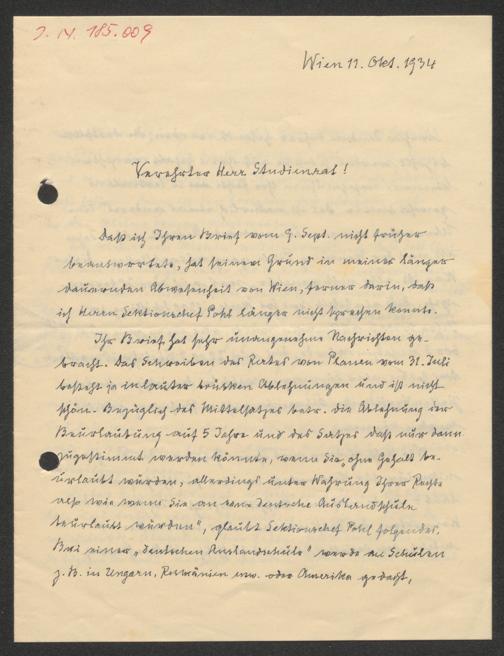 J. N. 185.009
Wien 11. Okt. 1934
Verehrter Herr Studienrat!
Daß ich Ihren Brief vom 9. Sept. nicht früher
beantwortete, hat seinen Grund in meiner länger
dauernden Abwesenheit von Wien, ferner darin, daß
ich Herrn Sektionschef Pohl länger nicht sprechen konnte.
Ihr Brief hat sehr unangenehme Nachrichten ge-
bracht. Das Schreiben des Rates von Plauen vom 31. Juli
besteht ja in lauter brüsken Ablehnungen und ist nicht
schön. Bezüglich des Mittelsatzes betr. die Ablehnung der
Beurlaubung auf 5 Jahre und des Satzes daß nur dann
zugestimmt werden könnte, wenn Sie „ohne Gehalt be-
urlaubt würden, allerdings unter Wahrung Ihrer Rechte
also wie wenn Sie an eine deutsche Auslandschule
beurlaubt würden", glaubt Sektionschef Pohl folgendes.
Bei einer „deutschen Auslandschule" werde an Schulen
z. B. in Ungarn, Rumänien usw. oder Amerika gedacht,